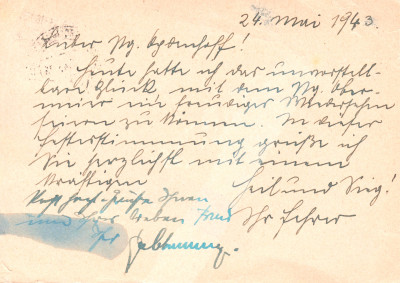 24. Mai 1943.
Lieber Pg. !
Heute hatte ich das unvorstell-
bare Glück, mit dem Pg. Ober-
meier ein freudiges Wiedersehen
feiern zu können. In dieser
Festesstimmung grüße ich
Sie herzlichst mit einem
kräftigen Heil und Sieg!
Ihnen
und Ihrer lieben Frau Ihr
Ihr